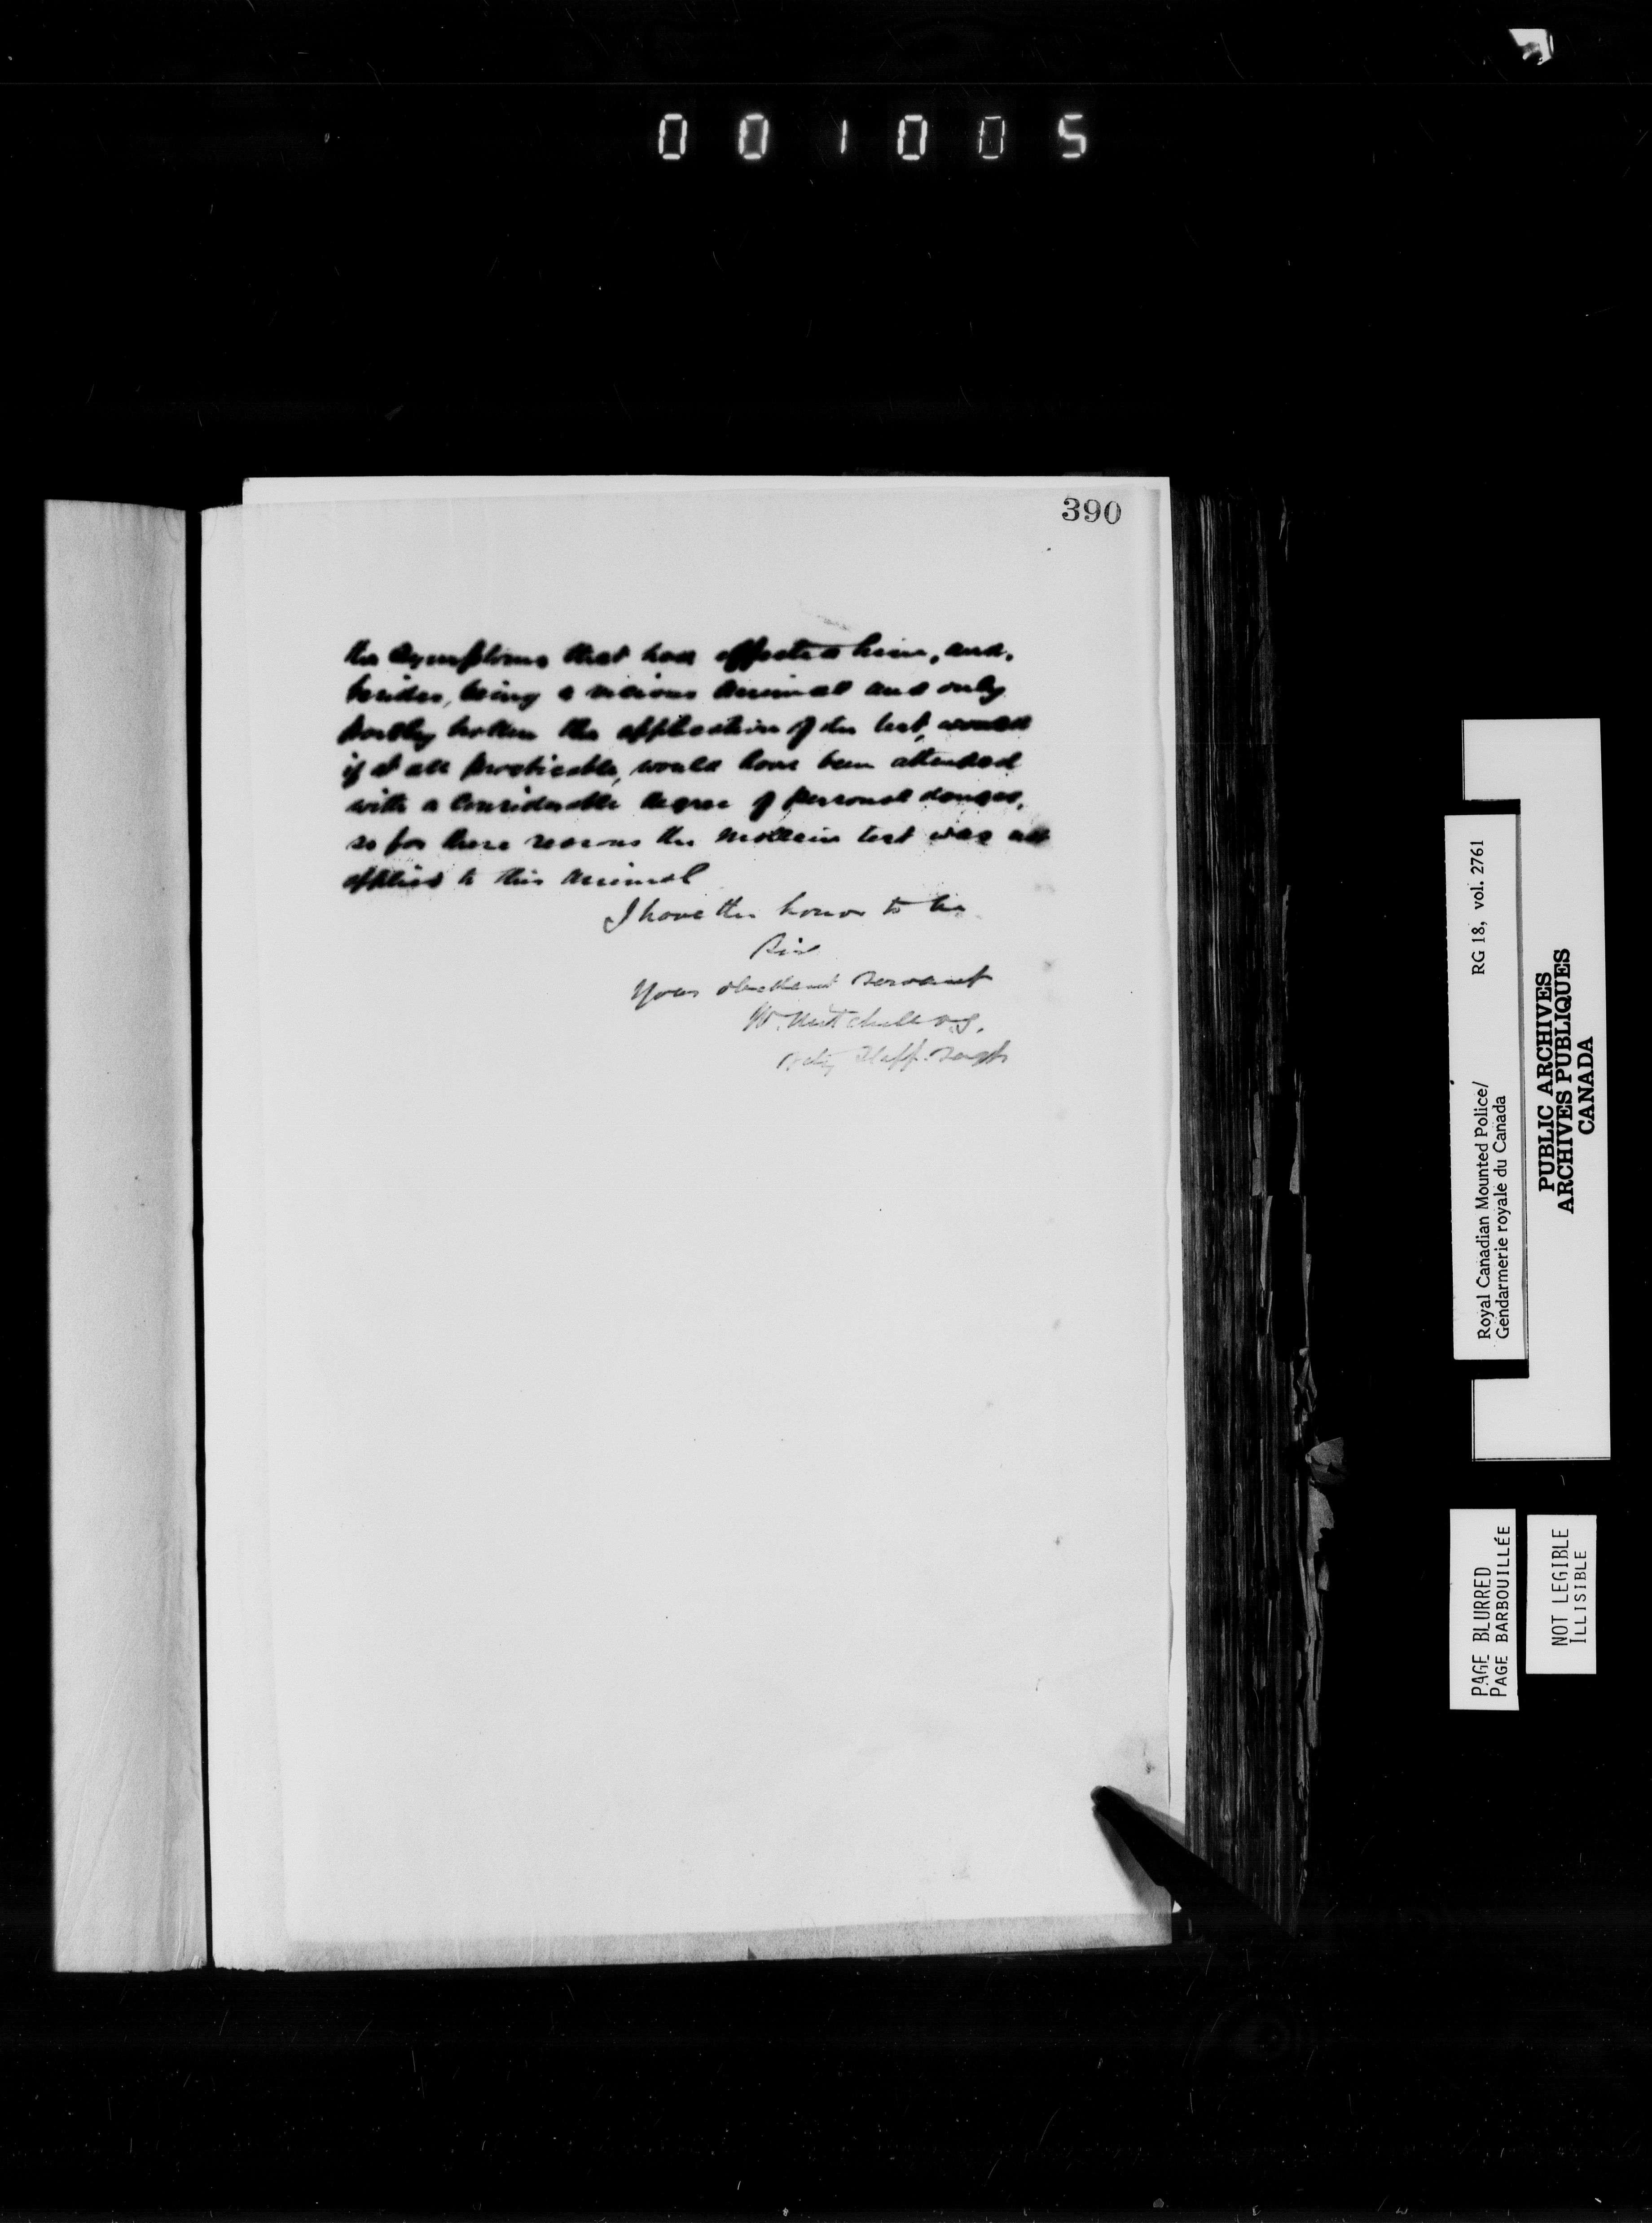 001005
390
the symptoms that had affected him, and,
besides, being a vicious animal and only
partly broken the application of the test, would
if at all practicable, would have been attended
with a considerable degree of personal danger,
so for these reasons the mallein test was not
applied to this animal
I have the honor to be
Sir
Your obedient servant
W. Mitchell V.S.
Vety Staff. Sergt
Royal Canadian Mounted Police/ RG 18, vol. 2761
Gendarmerie royale du Canada
PUBLIC ARCHIVES
ARCHIVES PUBLIQUES
CANADA
PAGE BLURRED
PAGE BARBOUILLÉE
NOT LEGIBLE
ILLISIBLE